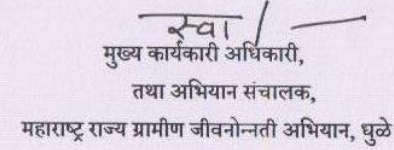 स्वा/-
मुख्य कार्यकारी अधिकारी,
तथा अभियान संचालक,
महाराष्ट्र राज्य ग्रामीण जीवनोन्नती अभियान, धुळे